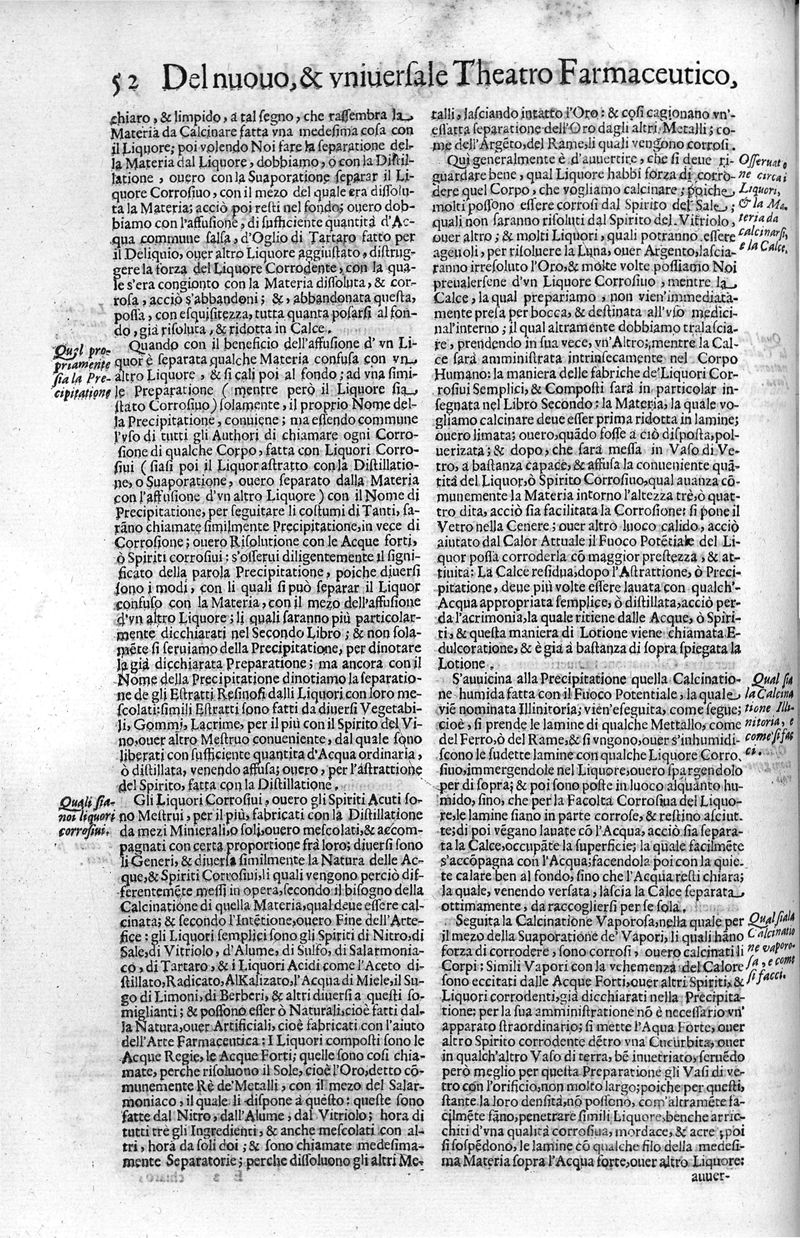 52 Del nuouo, & vniuerſale Theatro Farmaceutico,
chiaro, & limpido, a tal ſegno, che raſſembra la
Materia da Calcinare fatta vna medeſima coſa con
il Liquore; poi volendo Noi fare la ſeparatione del-
la Materia dal Liquore, dobbiamo, o con la Diſtil-
latione, ouero con la Suaporatione ſeparar il Li-
quore Corroſiuo, con il mezo del quale era diſſolu-
ta la Materia; acciò poi reſti nel fondo; ouero dob-
biamo con l'affuſione, di ſufficiente quantità d'Ac-
qua commune ſalſa, d'Oglio di Tartaro fatto per
il Deliquio, ouer altro Liquore aggiuſtato, diſtrug-
gere la forza del Liquore Corrodente, con la qua-
le s'era congionto con la Materia diſſoluta, & cor-
roſa, acciò s'abbandoni; &, abbandonata queſta,
poſſa, con eſquiſitezza, tutta quanta poſarſi al fon-
do, già riſoluta, & ridotta in Calce.
Quando con il beneficio dell'affuſione d'vn Li
quor è ſeparata qualche Materia confuſa con vn
altro Liquore, & ſi cali poi al fondo; ad vna ſimi-
le Preparatione (mentre però il Liquore ſia
ſtato Corroſiuo) ſolamente, il proprio Nome del-
la Precipitatione, conuiene; ma eſſendo commune
l'vſo di tutti gli Authori di chiamare ogni Corro-
ſione di qualche Corpo, fatta con Liquori Corro-
ſiui (ſiaſi poi il Liquor aſtratto con la Diſtillatio-
ne, o Suaporatione, ouero ſeparato dalla Materia
con l'affuſione d'vn altro Liquore) con il Nome di
Precipitatione, per ſeguitare li coſtumi di Tanti, ſa-
rãno chiamate ſimilmente Precipitatione, in vece di
Corroſione; ouero Riſolutione con le Acque forti,
ò Spiriti corroſiui: s'oſſerui diligentemente il ſigni-
ficato della parola Precipitatione, poiche diuerſi
ſono i modi, con li quali ſi può ſeparar il Liquor
confuſo con la Materia, con il mezo dell'affuſione
d'vn altro Liquore; li quali ſaranno più particolar-
mente dicchiarati nel Secondo Libro; & non ſola-
mẽte ſi ſeruiamo della Precipitatione, per dinotare
la già dicchiarata Preparatione; ma ancora con il
Nome della Precipitatione dinotiamo la ſeparatio-
ne de gli Eſtratti Reſinoſi dalli Liquori con loro me-
ſcolati: ſimili Eſtratti ſono fatti da diuerſi Vegetabi-
li, Gommi, Lacrime, per il più con il Spirito del Vi-
no, ouer altro Meſtruo conueniente, dal quale ſono
liberati con ſufficiente quantita d'Acqua ordinaria,
ò diſtillata, venendo affuſa; ouero, per l'aſtrattione
del Spirito, fatta con la Diſtillatione.
Gli Liquori Corroſiui, ouero gli Spiriti Acuti ſo-
no Meſtrui, per il più, fabricati con la Diſtillatione
da mezi Minierali, o ſoli, ouero meſcolati, & accom-
pagnati con certa proportione frà loro; diuerſi ſono
li Generi, & diuerſa ſimilmente la Natura delle Ac-
que, & Spiriti Corroſiui, li quali vengono perciò dif-
ferentemẽte meſſi in opera, ſecondo il biſogno della
Calcinatione di quella Materia, qual deue eſſere cal-
cinata; & ſecondo l'Intẽtione, ouero Fine dell'Arte-
fice: gli Liquori ſemplici ſono gli Spiriti di Nitro, di
Sale, di Vitriolo, d'Alume, di Sulfo, di Salarmonia-
co, di Tartaro, & i Liquori Acidi come l'Aceto di-
ſtillato, Radicato, AlKalizato, l'Acqua di Miele, il Su-
go di Limoni, di Berberi, & altri diuerſi a queſti ſo-
miglianti; & poſſono eſſer ò Naturali, cioè fatti dal-
la Natura, ouer Artificiali, cioè fabricati con l'aiuto
dell'Arte Farmaceutica: I Liquori compoſti ſono le
Acque Regie, le Acque Forti; quelle ſono coſi chia-
mate, perche riſoluono il Sole, cioè l'Oro, detto cõ-
munemente Rè de' Metalli, con il mezo del Salar-
moniaco, il quale li diſpone à queſto: queſte ſono
fatte dal Nitro, dall'Alume, dal Vitriolo; hora di
tutti tre gli Ingredienti, & anche meſcolati con al-
tri, hora da ſoli doi; & ſono chiamate medeſima-
mente Separatorie; perche diſſoluono gli altri Me-
Qual pro-
priamente
ſia la Pre-
cipitatione
Quali ſia-
no i liquori
corroſiui.
talli, laſciando intatto l'Oro: & coſi cagionano vn'
eſſatta ſeparatione dell'Oro dagli altri Metalli; co-
me dell'Argẽto, del Rame, li quali vengono corroſi.
Qui generalmente è d'auuertire, che ſi deue ri-
guardare bene, qual Liquore habbi forza di corro-
dere quel Corpo, che vogliamo calcinare; poiche
molti poſſono eſſere corroſi dal Spirito del Sale;
quali non ſaranno riſoluti dal Spirito del Vitriolo,
ouer altro; & molti Liquori, quali potranno eſſere
ageuoli, per riſoluere la Luna, ouer Argento, laſcia-
ranno irreſoluto l'Oro, & molte volte poſſiamo Noi
preualerſene d'vn Liquore Corroſiuo, mentre la
Calce, la qual prepariamo, non vien' immediata-
mente preſa per bocca, & deſtinata all'vſo medici-
nal' interno; il qual altramente dobbiamo tralaſcia-
re, prendendo in ſua vece, vn' Altro; mentre la Cal-
ce ſarà amminiſtrata intrinſecamente nel Corpo
Humano: la maniera delle fabriche de' Liquori Cor-
roſiui Semplici, & Compoſti ſarà in particolar in-
ſegnata nel Libro Secondo: la Materia, la quale vo-
gliamo calcinare deue eſſer prima ridotta in lamine;
ouero limata; ouero, quãdo foſſe a ciò diſpoſta, pol-
uerizata; & dopo, che ſarà meſſa in Vaſo di Ve-
tro, a baſtanza capace, & affuſa la conueniente quã-
tità del Liquor, ò Spirito Corroſiuo, qual auanza cõ-
munemente la Materia intorno l'altezza trè, ò quat-
tro dita, acciò ſia facilitata la Corroſione: ſi pone il
Vetro nella Cenere; ouer altro luoco calido, acciò
aiutato dal Calor Attuale il Fuoco Potẽtiale del Li-
quor poſſa corroderla cõ maggior preſtezza, & at-
tiuità: La Calce reſidua, dopo l'Aſtrattione, ò Preci-
pitatione, deue più volte eſſere lauata con qualch'
Acqua appropriata ſemplice, ò diſtillata, acciò per-
da l'acrimonia, la quale ritiene dalle Acque, ò Spiri-
ti, & queſta maniera di Lotione viene chiamata E-
dulcoratione, & è già à baſtanza di ſopra ſpiegata la
Lotione.
S'auuicina alla Precipitatione quella Calcinatio-
ne humida fatta con il Fuoco Potentiale, la quale
viẽ nominata Illinitoria; vien' eſeguita, come ſegue;
cioè, ſi prende le lamine di qualche Mettallo, come
del Ferro, ò del Rame, & ſi vngono, ouer s'inhumidi-
ſcono le ſudette lamine con qualche Liquore Corro-
ſiuo, immergendole nel Liquore, ouero ſpargendolo
per di ſopra; & poi ſono poſte in luoco alquanto hu-
mido, ſino, che per la Facoltà Corroſiua del Liquo-
re, le lamine ſiano in parte corroſe, & reſtino aſciut-
te; di poi vẽgano lauate cõ l'Acqua, acciò ſia ſepara-
ta la Calce, occupãte la ſuperficie; la quale facilmẽte
s'accõpagna con l'Acqua; facendola poi con la quie-
te calare ben al fondo, ſino che l'Acqua reſti chiara;
la quale, venendo verſata, laſcia la Calce ſeparata
ottimamente, da raccoglierſi per ſe ſola.
Seguita la Calcinatione Vaporoſa, nella quale per
il mezo della Suaporatione de' Vapori, li quali hãno
forza di corrodere, ſono corroſi, ouero calcinati li
Corpi: Simili Vapori con la vehemenza del Calore
ſono eccitati dalle Acque Forti, ouer altri Spiriti, &
Liquori corrodenti, già dicchiarati nella Precipita-
tione: per la ſua amminiſtratione nõ è neceſſario vn'
apparato ſtraordinario; ſi mette l'Aqua Forte, ouer
altro Spirito corrodente dẽtro vna Cucurbita, ouer
in qualch'altro Vaſo di terra, bẽ inuetriato, ſeruẽdo
però meglio per queſta Preparatione gli Vaſi di ve-
tro con l'orificio, non molto largo; poiche per queſti,
ſtante la loro denſità, nõ poſſono, com'altramẽte fa-
cilmẽte fãno, penetrare ſimili Liquore, benche arric-
chiti d'vna qualità corroſiua, mordace, & acre; poi
ſi ſoſpẽdono, le lamine cõ qualche filo della medeſi-
ma Materia ſopra l'Acqua forte, ouer altro Liquore:
auuer-
Oſſeruat.
ne circa i
Liquori,
& la Ma-
teria da
calcinarſi,
e la Calce.
Qual ſia
la Calcina
tione Illi-
nitoria, e
come ſi fac
ci.
Qual ſia la
Calcinatio
ne vaporo-
ſa, e come
ſi facci.